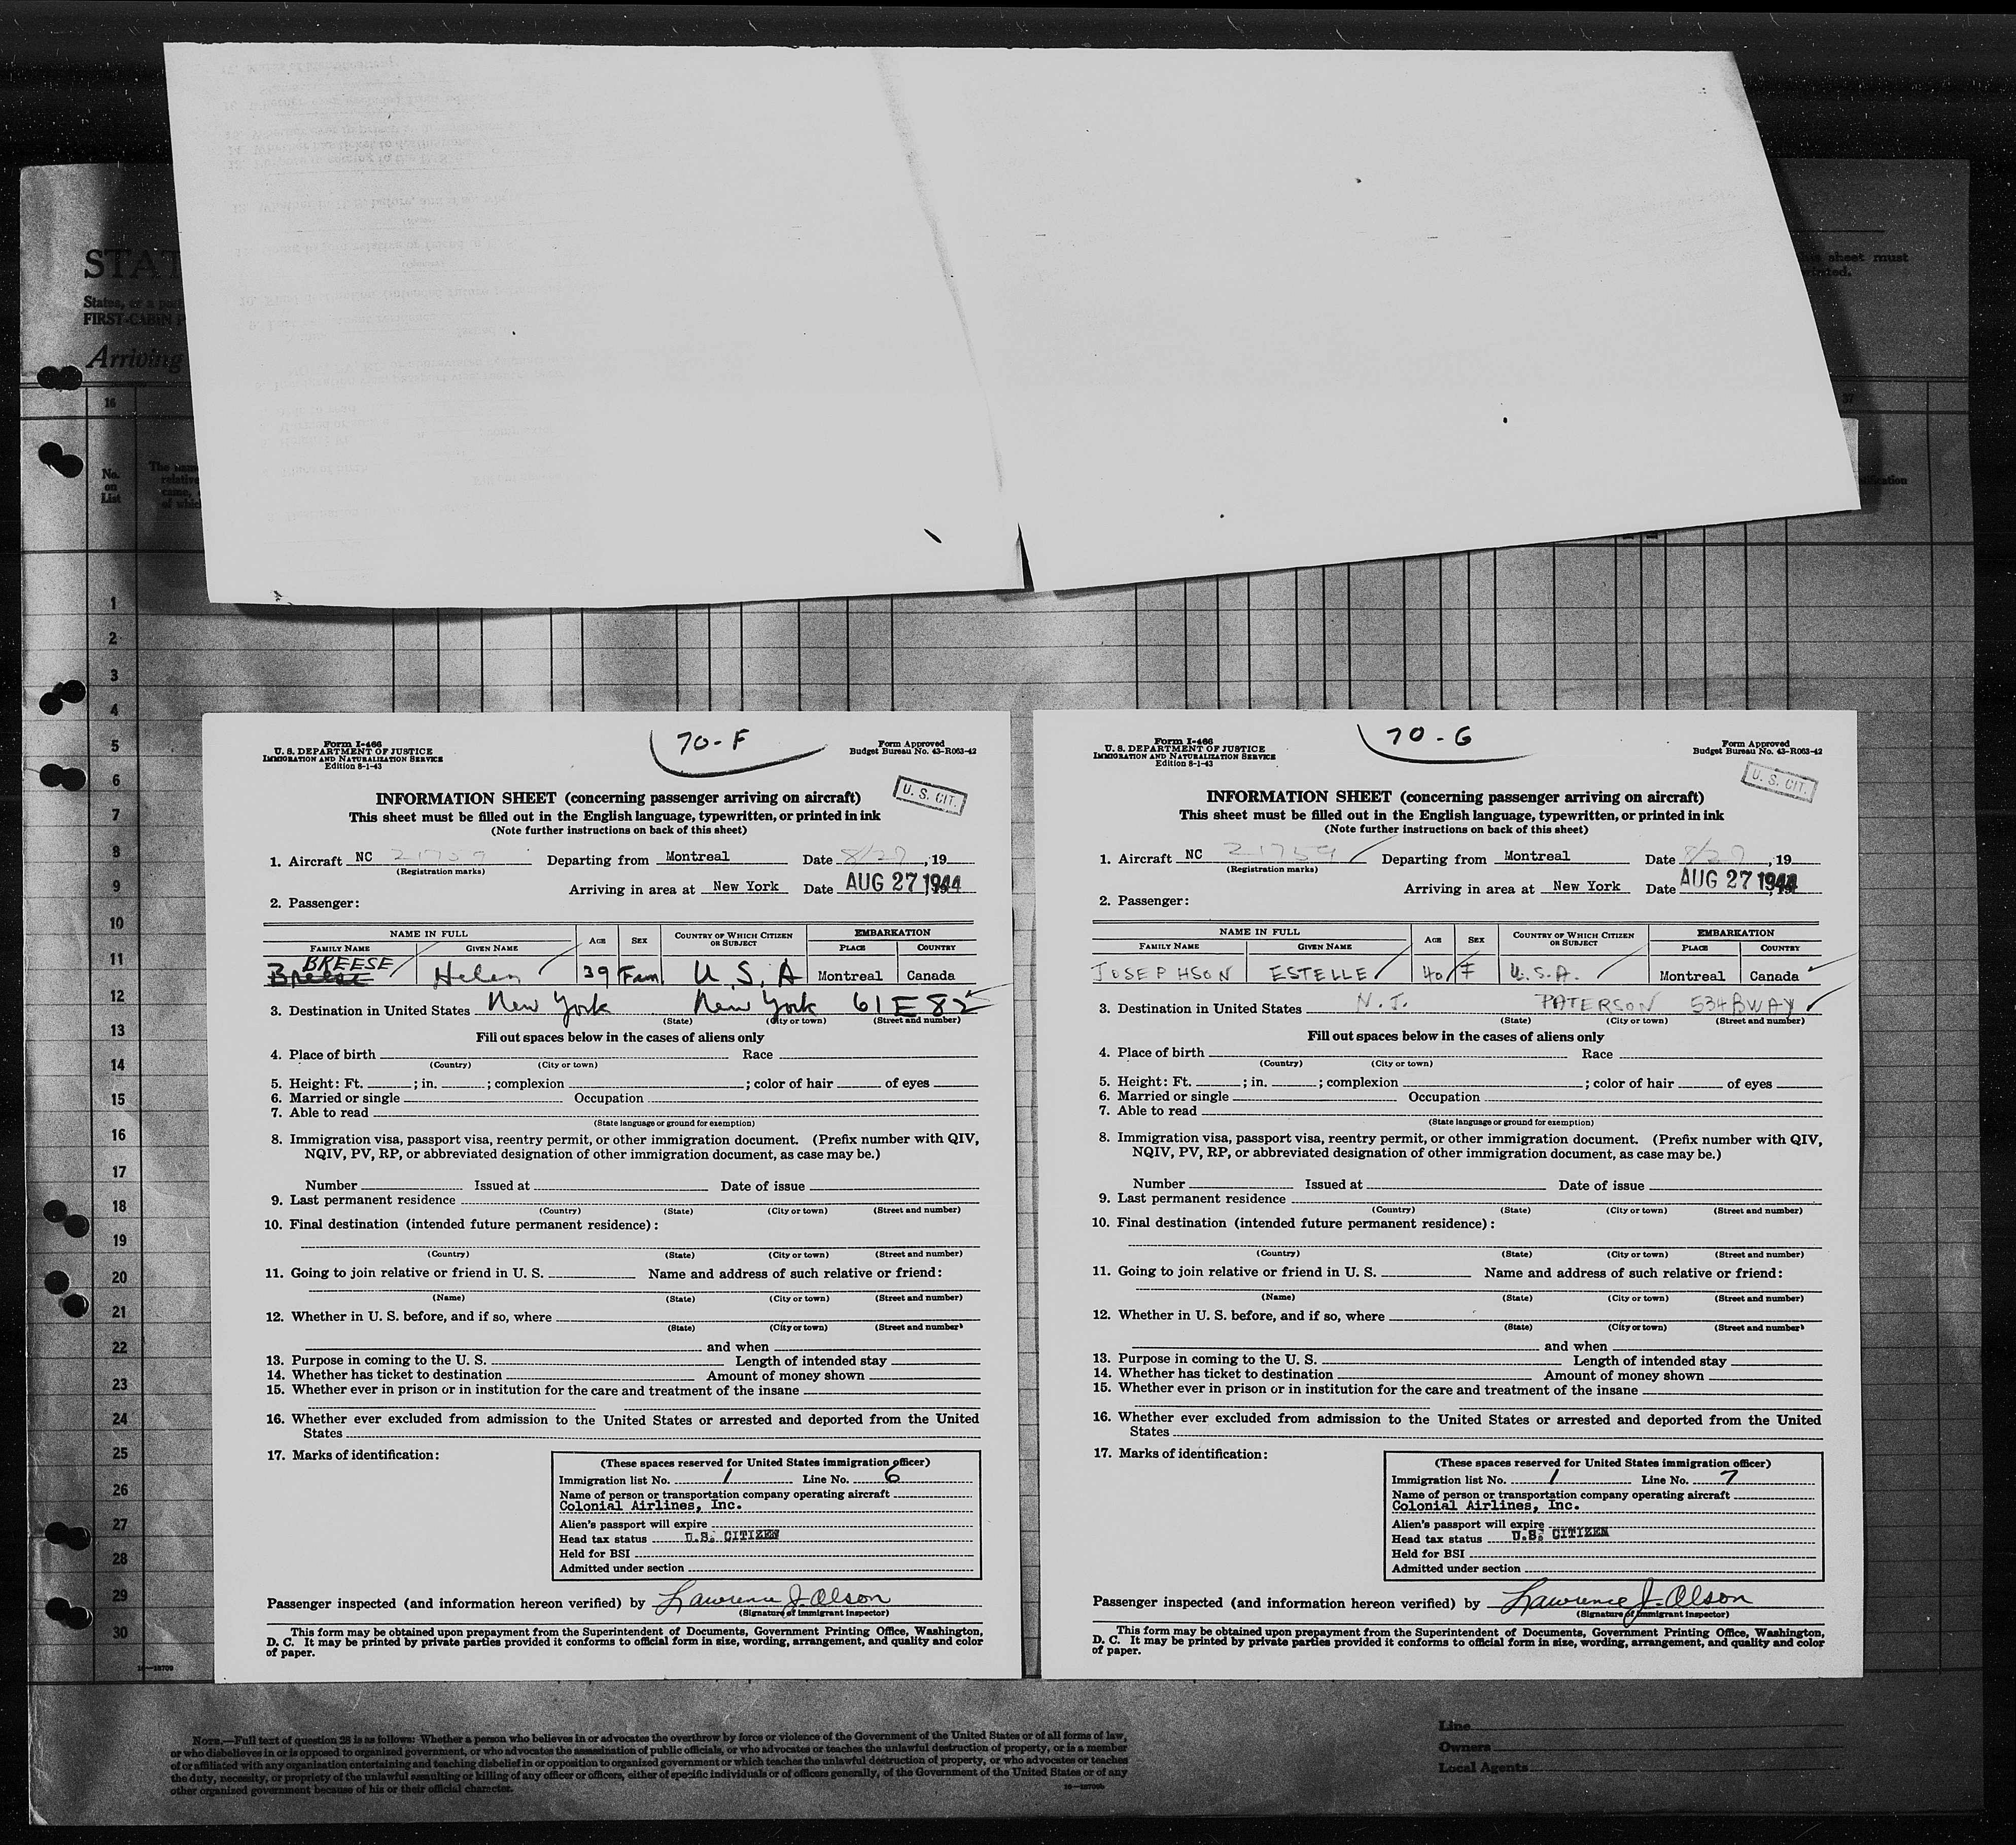 STAT
States, or a port
FIRST-CABIN P
Arriving
sheet must
16
37
No.
on
List
The name
relative
came,
of which
1
2
3
4
5
6
7
8
9
10
11
12
13
14
15
16
17
18
19
20
21
22
23
24
25
26
27
28
29
30
70-F
Form I-466
U. S. DEPARTMENT OF JUSTICE
IMMIGRATION AND NATURALIZATION SERVICE
Edition 8-1-43
Form Approved
Budget Bureau No. 43-R063-42
U. S. CIT.
INFORMATION SHEET (concerning passenger arriving on aircraft)
This sheet must be filled out in the English language, typewritten, or printed in ink
(Note further instructions on back of this sheet)
1. Aircraft NC 21759 Departing from Montreal Date 8/27, 19
(Registration marks)
Arriving in area at New York Date AUG 27 1944
2. Passenger:
NAME IN FULL AGE SEX COUNTRY OF WHICH CITIZEN OR SUBJECT EMBARKATION
FAMILY NAME GIVEN NAME PLACE COUNTRY
BREESE
Breese Helen 39 Fem. U.S.A Montreal Canada
3. Destination in United States New York New York 61 E 82
(State) (City or town) (Street and number)
Fill out spaces below in the cases of aliens only
4. Place of birth Race
(Country) (City or town)
5. Height: Ft. ; in. ; complexion ; color of hair of eyes
6. Married or single Occupation
7. Able to read
(State language or ground for exemption)
8. Immigration visa, passport visa, reentry permit, or other immigration document. (Prefix number with QIV,
NQIV, PV, RP, or abbreviated designation of other immigration document, as case may be.)
Number Issued at Date of issue
9. Last permanent residence
(Country) (State) (City or town) (Street and number)
10. Final destination (intended future permanent residence):
(Country) (State) (City or town) (Street and number)
11. Going to join relative or friend in U. S. Name and address of such relative or friend:
(Name) (State) (City or town) (Street and number)
12. Whether in U. S. before, and if so, where
(State) (City or town) (Street and number)
and when
13. Purpose in coming to the U. S. Length of intended stay
14. Whether has ticket to destination Amount of money shown
15. Whether ever in prison or in institution for the care and treatment of the insane
16. Whether ever excluded from admission to the United States or arrested and deported from the United
States
17. Marks of identification:
(These spaces reserved for United States immigration officer)
Immigration list No. 1 Line No. 6
Name of person or transportation company operating aircraft
Colonial Airlines, Inc.
Alien's passport will expire
Head tax status U.S. CITIZEN
Held for BSI
Admitted under section
Passenger inspected (and information hereon verified) by Lawrence J. Olson
(Signature of immigrant inspector)
This form may be obtained upon prepayment from the Superintendent of Documents, Government Printing Office, Washington,
D. C. It may be printed by private parties provided it conforms to official form in size, wording, arrangement, and quality and color
of paper.
70-G
Form I-466
U. S. DEPARTMENT OF JUSTICE
IMMIGRATION AND NATURALIZATION SERVICE
Edition 8-1-43
Form Approved
Budget Bureau No. 43-R063-42
U. S. CIT.
INFORMATION SHEET (concerning passenger arriving on aircraft)
This sheet must be filled out in the English language, typewritten, or printed in ink
(Note further instructions on back of this sheet)
1. Aircraft NC 21759 Departing from Montreal Date 8/27, 19
(Registration marks)
Arriving in area at New York Date AUG 27 1944
2. Passenger:
NAME IN FULL AGE SEX COUNTRY OF WHICH CITIZEN OR SUBJECT EMBARKATION
FAMILY NAME GIVEN NAME PLACE COUNTRY
JOSEPHSON ESTELLE 40 F U.S.A. Montreal Canada
3. Destination in United States N.J. PATERSON 534 BWAY
(State) (City or town) (Street and number)
Fill out spaces below in the cases of aliens only
4. Place of birth Race
(Country) (City or town)
5. Height: Ft. ; in. ; complexion ; color of hair of eyes
6. Married or single Occupation
7. Able to read
(State language or ground for exemption)
8. Immigration visa, passport visa, reentry permit, or other immigration document. (Prefix number with QIV,
NQIV, PV, RP, or abbreviated designation of other immigration document, as case may be.)
Number Issued at Date of issue
9. Last permanent residence
(Country) (State) (City or town) (Street and number)
10. Final destination (intended future permanent residence):
(Country) (State) (City or town) (Street and number)
11. Going to join relative or friend in U. S. Name and address of such relative or friend:
(Name) (State) (City or town) (Street and number)
12. Whether in U. S. before, and if so, where
(State) (City or town) (Street and number)
and when
13. Purpose in coming to the U. S. Length of intended stay
14. Whether has ticket to destination Amount of money shown
15. Whether ever in prison or in institution for the care and treatment of the insane
16. Whether ever excluded from admission to the United States or arrested and deported from the United
States
17. Marks of identification:
(These spaces reserved for United States immigration officer)
Immigration list No. 1 Line No. 7
Name of person or transportation company operating aircraft
Colonial Airlines, Inc.
Alien's passport will expire
Head tax status U.S. CITIZEN
Held for BSI
Admitted under section
Passenger inspected (and information hereon verified) by Lawrence J. Olson
(Signature of immigrant inspector)
This form may be obtained upon prepayment from the Superintendent of Documents, Government Printing Office, Washington,
D. C. It may be printed by private parties provided it conforms to official form in size, wording, arrangement, and quality and color
of paper.
NOTE.—Full text of question 28 is as follows: Whether a person who believes in or advocates the overthrow by force or violence of the Government of the United States or of all forms of law,
or who disbelieves in or is opposed to organized government, or who advocates the assassination of public officials, or who advocates or teaches the unlawful destruction of property, or is a member
of or affiliated with any organization entertaining and teaching disbelief in or opposition to organized government or which teaches the unlawful destruction of property, or who advocates or teaches
the duty, necessity, or propriety of the unlawful assaulting or killing of any officer or officers, either of specific individuals or of officers generally, of the Government of the United States or of any
other organized government because of his or their official character.
Line
Owners
Local Agents